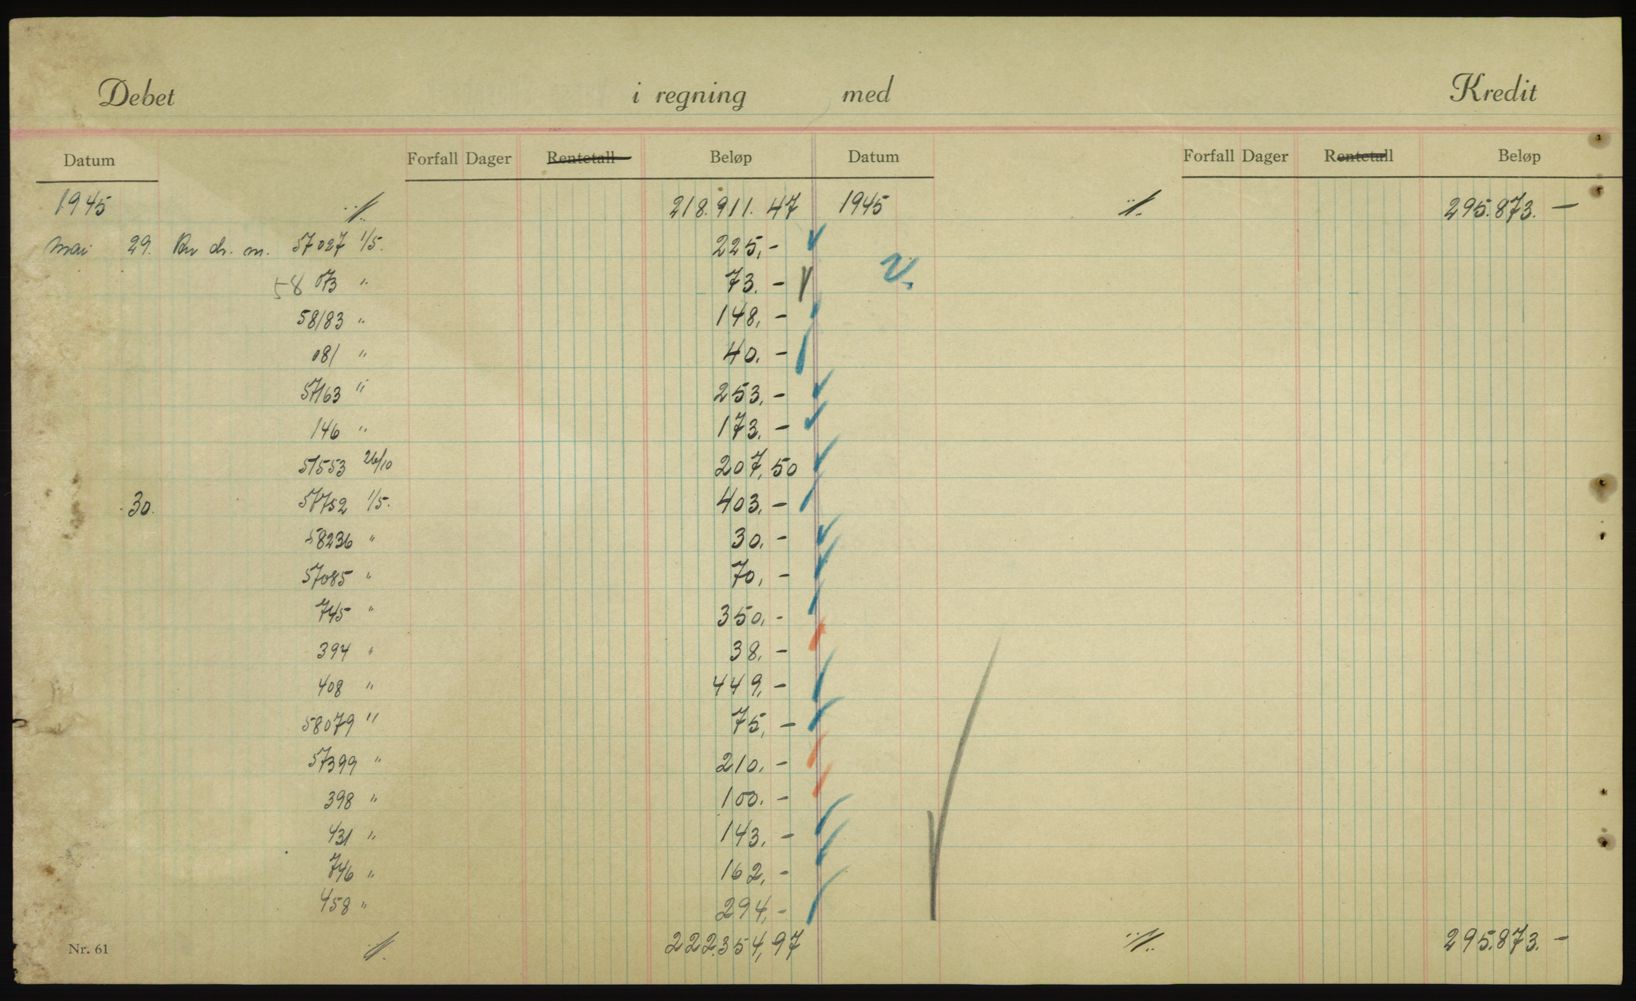 Debet i regning med Kredit
Datum Forfall Dager Rentetall Beløp Datum Forfall Dager Rentetall Beløp
1945 218.911.47 1945 295.873.—
mai 29. 57027 1/5. 225,-
58 073 " 73.-
58183 " 148,-
081 " 40.-
57163 " 253,-
146 " 173.-
51553 26/10 207,50
30. 57752 1/5. 403,-
58236 " 30,-
57085 " 70,-
745 " 350,-
394 " 38,-
408 " 449,-
58079 " 75,-
57399 " 210.-
398 " 100.-
431 " 143.-
746 " 162,-
458 " 294,-
Nr. 61 222.354,97 295.873.-